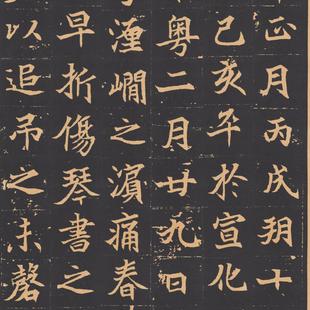 正月丙戌朔十
己亥卒於宣化
粤二月廿九日
瀍澗之濱痛春
早折傷琴書之
以追吊之未罄